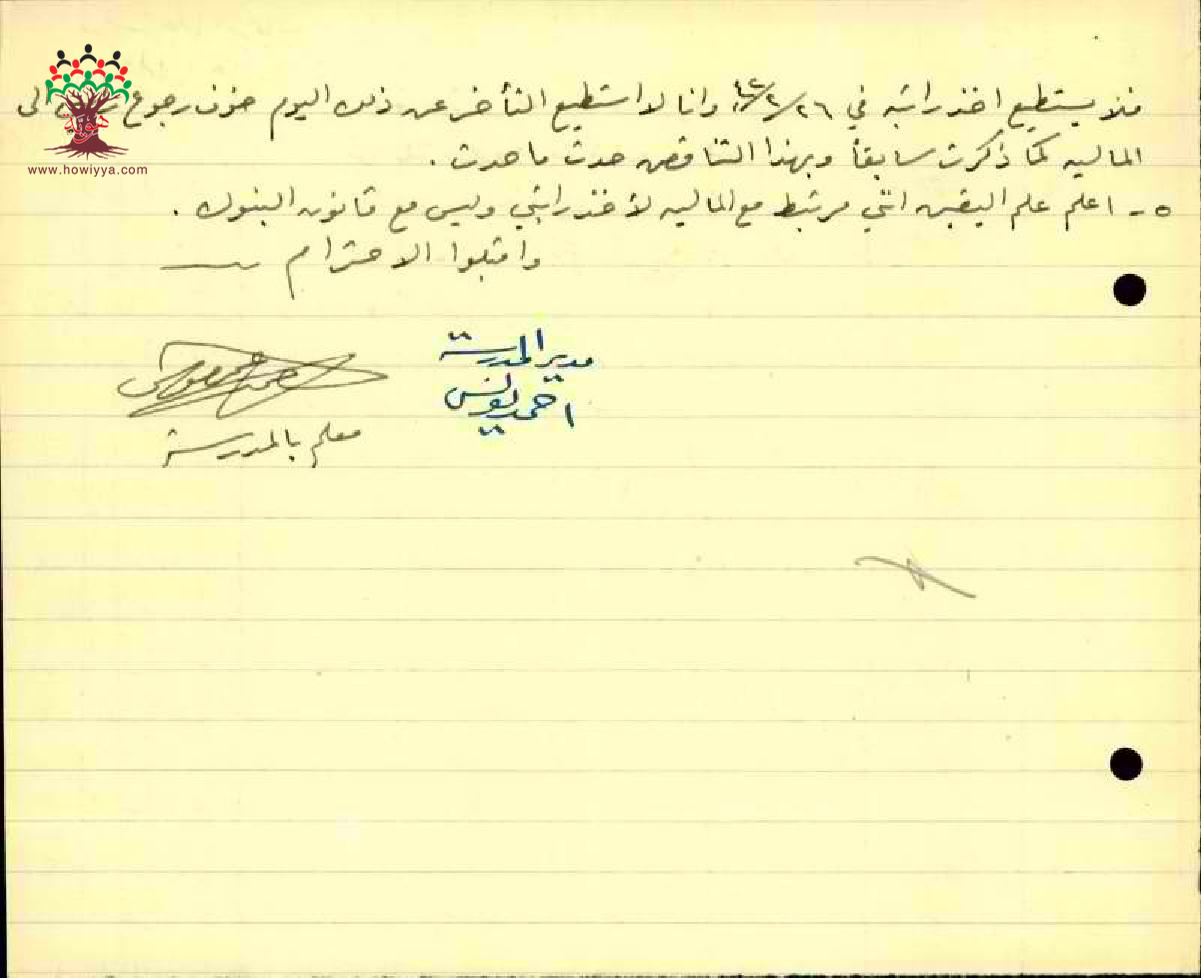 فلا يستطيع اخذ راتبه في ٢٦/٢/ وانا لا استطيع التأخر عن ذلك اليوم خوف رجوع الى
الماليه كما ذكرت سابقاً وبهذا التناقض حدث ما حدث .
٥- اعلم علم اليقين انني مرتبط مع الماليه لأخذ راتبي وليس مع قانون البنوك .
واقبلوا الاحترام
مدير المدرسة
احمد يونس
معلم بالمدرسة
هوية
www.howiyya.com